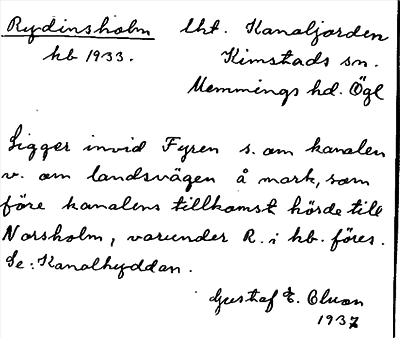 Rydinsholm lht. Kanaljorden
kb 1933. Kimstads sn.
Memmings hd. Ögl
Ligger invid Fyren s. om kanalen
v. om landsvägen å mark, som
före kanalens tillkomst hörde till
Norsholm, varunder R. i kb. föres.
Se: Kanalhyddan.
Gustaf E. Oluon
1937